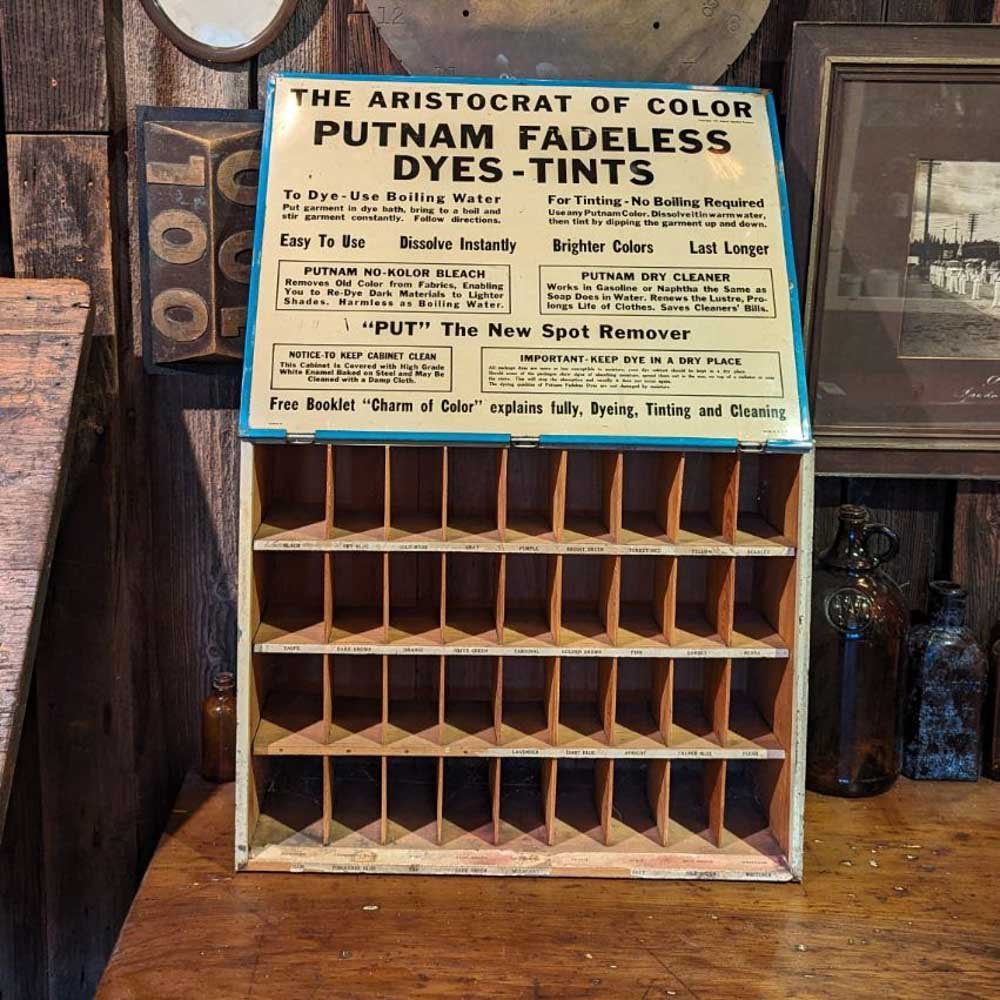 THE ARISTOCRAT OF COLOR
PUTNAM FADELESS
DYES-TINTS
To Dye-Use Boiling Water
Put garment in dye bath, bring to a boil and
stir garment constantly. Follow directions.
For Tinting-No Boiling Required
Use any Putnam Color. Dissolve it in warm water,
then tint by dipping the garment up and down.
Easy To Use Dissolve Instantly Brighter Colors Last Longer
PUTNAM NO-KOLOR BLEACH
Removes Old Color from Fabrics, Enabling
You to Re-Dye Dark Materials to Lighter
Shades. Harmless as Boiling Water.
PUTNAM DRY CLEANER
Works in Gasoline or Naphtha the Same as
Soap Does in Water. Renews the Lustre, Pro-
longs Life of Clothes. Saves Cleaners' Bills.
"PUT" The New Spot Remover
NOTICE-TO KEEP CABINET CLEAN
This Cabinet is Covered with High Grade
White Enamel Baked on Steel and May Be
Cleaned with a Damp Cloth.
IMPORTANT-KEEP DYE IN A DRY PLACE
Free Booklet "Charm of Color" explains fully, Dyeing, Tinting and Cleaning
BLACK GRAY PURPLE BRIGHT GREEN TURKEY RED YELLOW SCARLET
TAUPE DARK BROWN ORANGE CARDINAL GOLDEN BROWN PINK
LAVENDER APRICOT
12